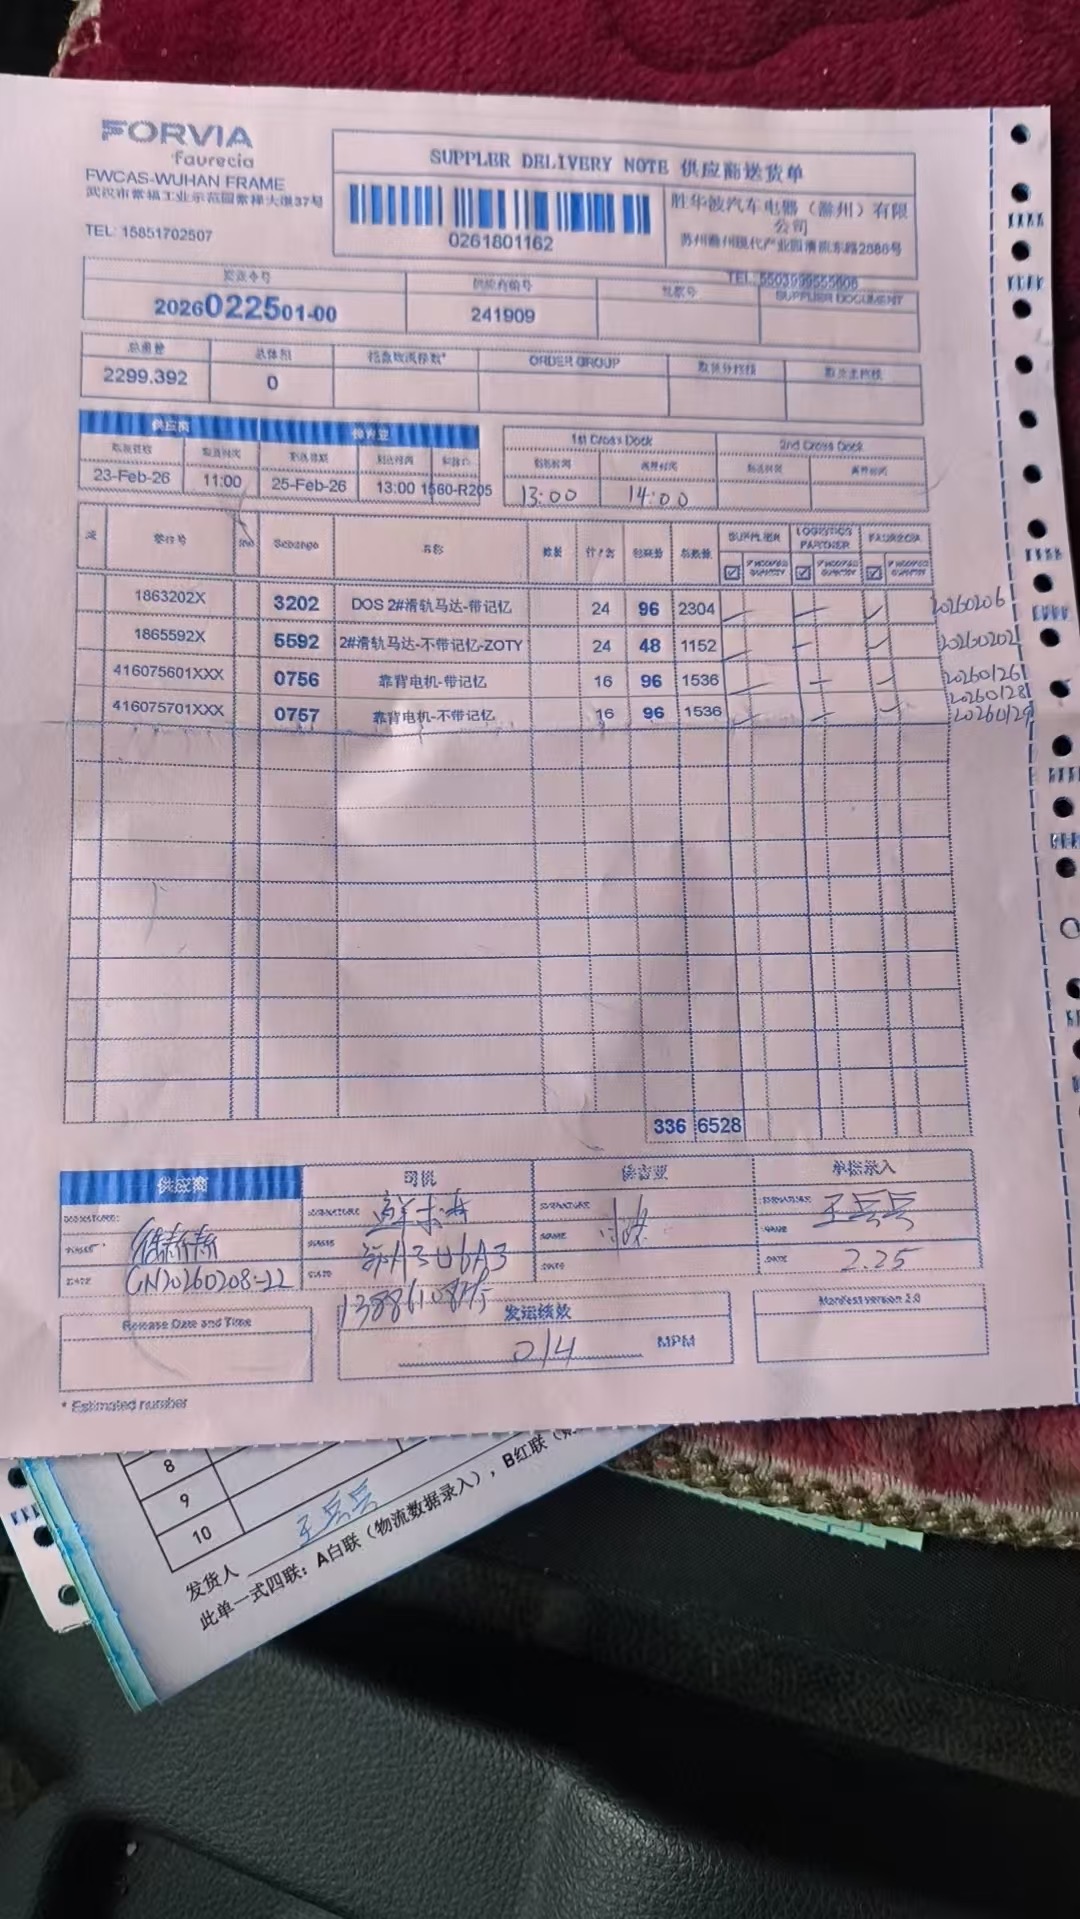 FORVIA
faurecia
FWCAS-WUHAN FRAME
武汉市常福工业示范园常禄大道37号
TEL: 15851702507
SUPPLER DELIVERY NOTE 供应商送货单
0261801162
胜华波汽车电器（滁州）有限
公司
TEL: 5503999555606
发运令号
供应商编号
SUPPLIER DOCUMENT
2026022501-00
241909
总重量
总体积
ORDER GROUP
2299.392
0
供应商
佛吉亚
1st Cross Dock
2nd Cross Dock
到达时间
离开时间
到达时间
离开时间
23-Feb-26
11:00
25-Feb-26
13:00
1560-R205
13:00
14:00
零件号
Sebango
名称
数量
件/套
包装数
总数量
SUPPLIER
LOGISTICS PARTNER
FAURECIA
1863202X 3202 DOS 2#滑轨马达-带记忆 24 96 2304 20260206
1865592X 5592 2#滑轨马达-不带记忆-ZOTY 24 48 1152 20260202
416075601XXX 0756 靠背电机-带记忆 16 96 1536 20260126
20260128
416075701XXX 0757 靠背电机-不带记忆 16 96 1536 20260129
336 6528
供应商
司机
佛吉亚
单据录入
SIGNATURE:
SIGNATURE
SIGNATURE
SIGNATURE
王兵兵
NAME
NAME
NAME
DATE
CN20260208-22
DATE
DATE
DATE
2.25
Release Date and Time
发运绩效
Manifest version 2.0
014 MPM
* Estimated number
8
9
10
发货人 王兵兵
此单一式四联：A白联（物流数据录入），B红联（